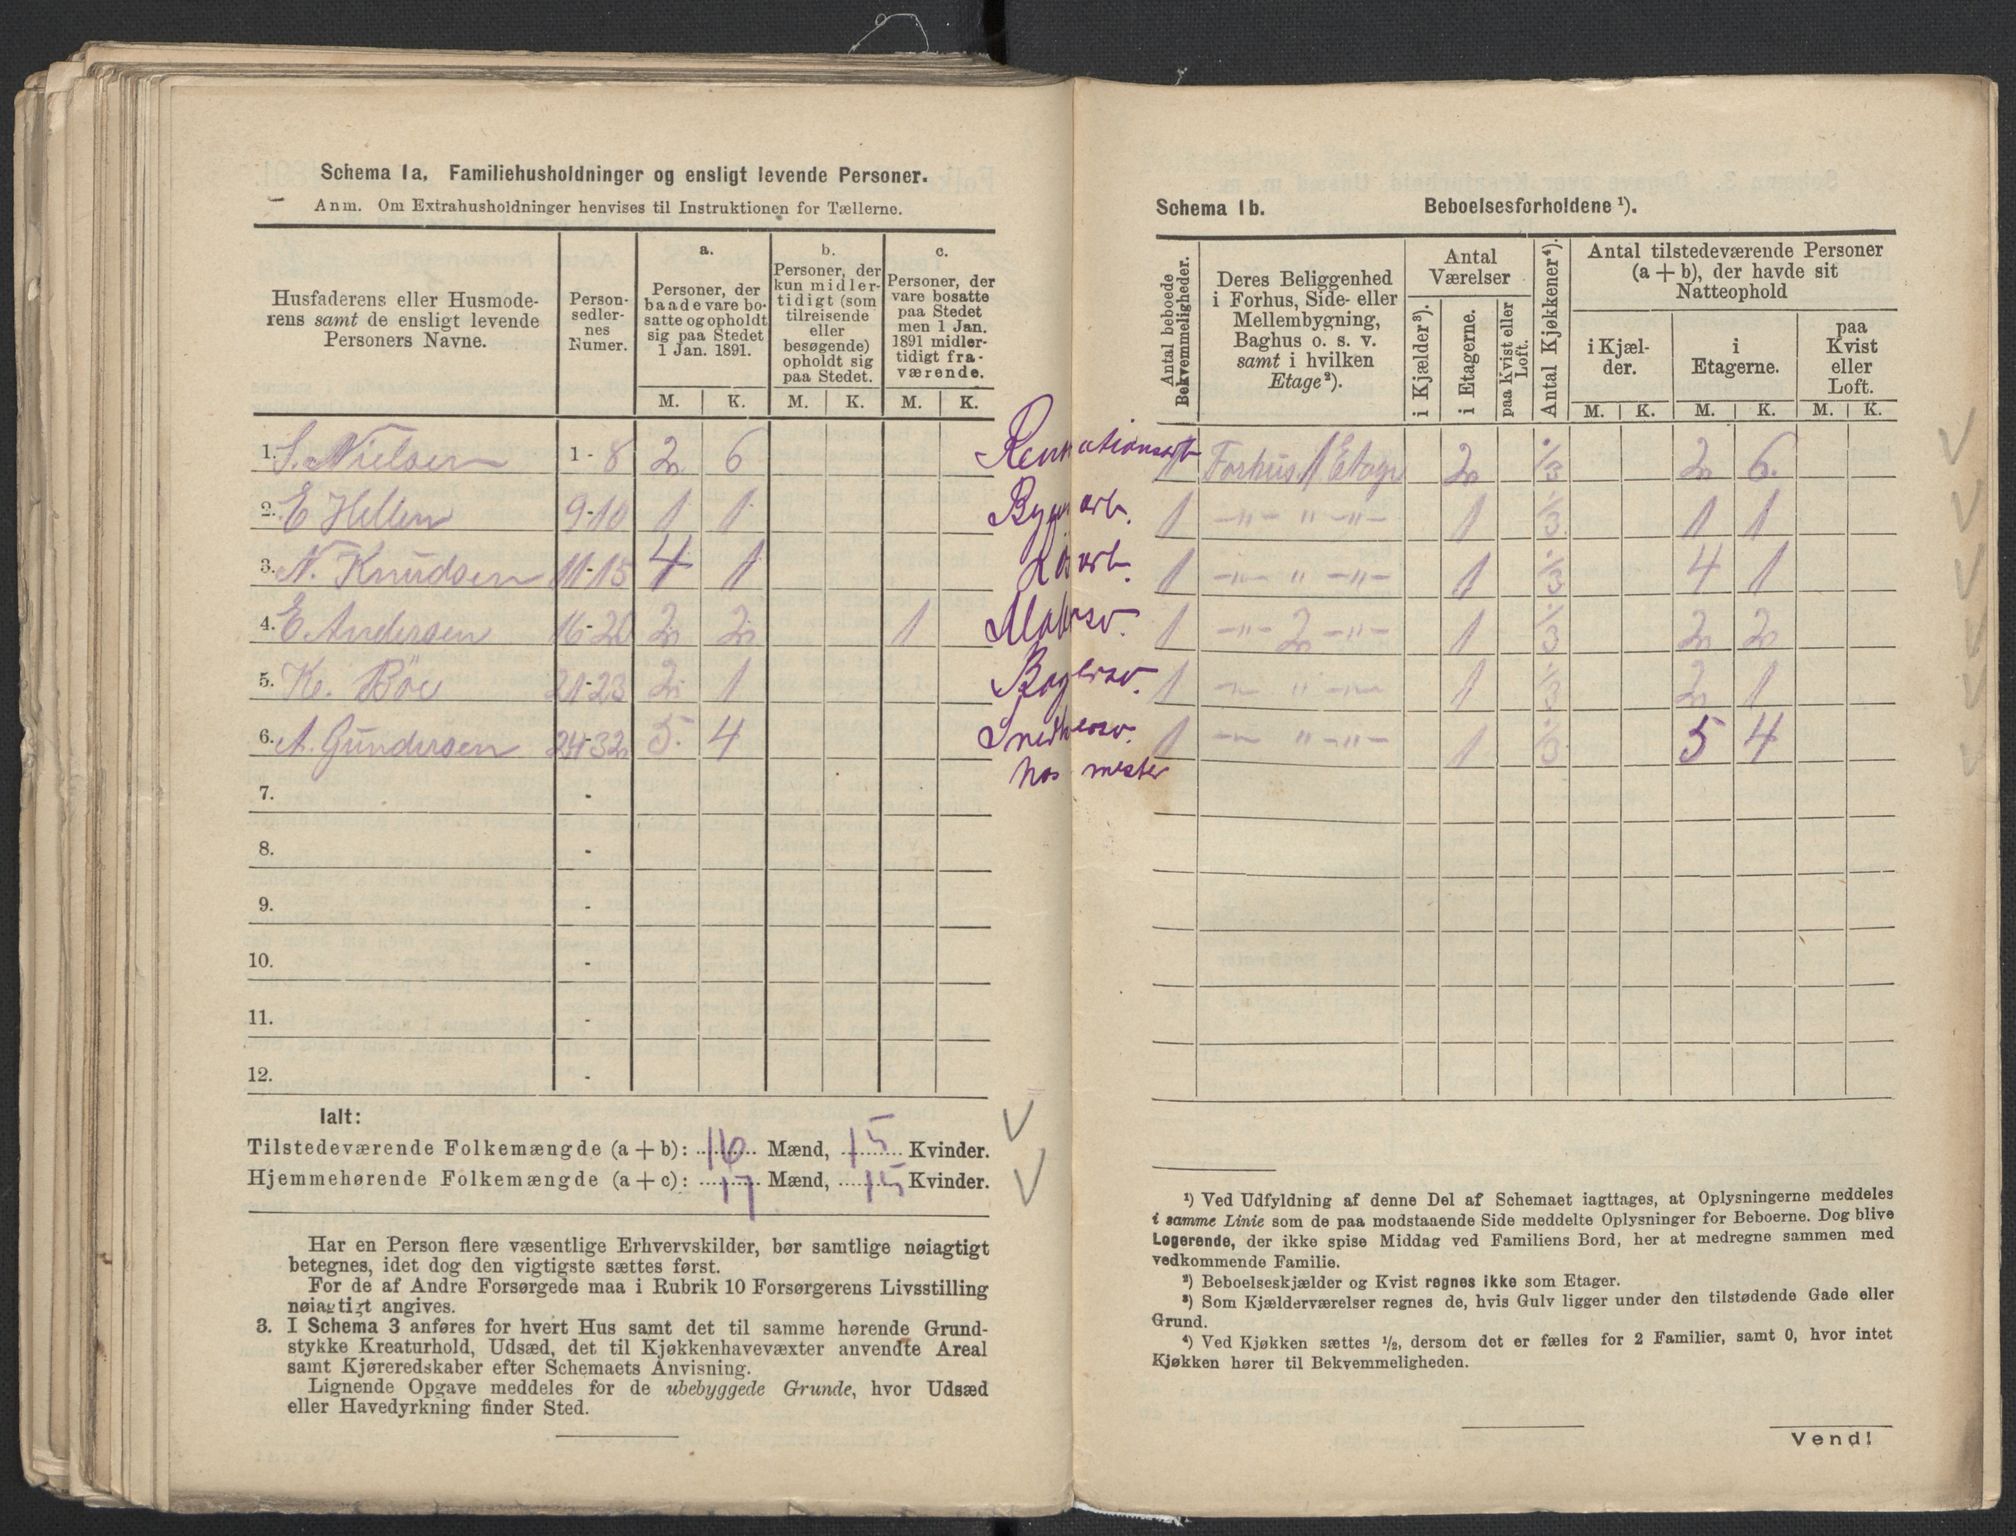 Schema 1a, Familiehusholdninger og ensligt levende Personer.
Anm. Om Extrahusholdninger henvises til Instruktionen for Tællerne.
Husfaderens eller Husmode-
rens samt de ensligt levende
Personers Navne.
Person-
sedler-
nes
Numer.
a.
Personer, der
baade vare bo-
satte og opholdt
sig paa Stedet
1 Jan. 1891.
b.
Personer, der
kun midler-
tidigt (som
tilreisende
eller
besøgende)
opholdt sig
paa Stedet.
c.
Personer, der
vare bosatte
paa Stedet
men 1 Jan.
1891 midler-
tidigt fra-
værende.
M. K. M. K. M. K.
1. S. Nielsen 1 - 8 2 6
2. E Hellen 9-10 1 1 Bygn arb.
3. N. Knudsen 11-15 4 1 Løsarb.
4. E. Andersen 16-20 2 2 1 Malersv.
5. Kr. Böe 21-23 2 1 Bagersv.
6. A. Gundersen 24-32 5. 4 Snedkersv.
hos mester
7. -
8. -
9. -
10. -
11. -
12. -
Ialt:
Tilstedeværende Folkemængde (a + b): 16 Mænd, 15 Kvinder.
Hjemmehørende Folkemængde (a + c): 17 Mænd, 15 Kvinder.
Har en Person flere væsentlige Erhvervskilder, bør samtlige nøiagtigt
betegnes, idet dog den vigtigste sættes først.
For de af Andre Forsørgede maa i Rubrik 10 Forsørgerens Livsstilling
nøiagtigt angives.
3. I Schema 3 anføres for hvert Hus samt det til samme hørende Grund-
stykke Kreaturhold, Udsæd, det til Kjøkkenhavevæxter anvendte Areal
samt Kjøreredskaber efter Schemaets Anvisning.
Lignende Opgave meddeles for de ubebyggede Grunde, hvor Udsæd
eller Havedyrkning finder Sted.
Schema 1b. Beboelsesforholdene ¹).
Antal beboede
Bekvemmeligheder.
Deres Beliggenhed
i Forhus, Side- eller
Mellembygning,
Baghus o. s. v.
samt i hvilken
Etage²).
Antal
Værelser
i Kjælder³).
i Etagerne.
paa Kvist eller
Loft.
Antal Kjøkkener⁴).
Antal tilstedeværende Personer
(a + b), der havde sit
Natteophold
i Kjæl-
der.
i
Etagerne.
paa
Kvist
eller
Loft.
M. K. M. K. M. K.
1 Forhus 1 Etage 2 1/3 2 6.
1 -"- " -"- 1 1/3 1 1
1 -"- " -"- 1 1/3 4 1
1 -"- 2 -"- 1 1/3 2 2
1 -"- " -"- 1 1/3 2 1
1 -"- " -"- 1 1/3 5 4
¹) Ved Udfyldning af denne Del af Schemaet iagttages, at Oplysningerne meddeles
i samme Linie som de paa modstaaende Side meddelte Oplysninger for Beboerne. Dog blive
Logerende, der ikke spise Middag ved Familiens Bord, her at medregne sammen med
vedkommende Familie.
²) Beboelseskjælder og Kvist regnes ikke som Etager.
³) Som Kjælderværelser regnes de, hvis Gulv ligger under den tilstødende Gade eller
Grund.
⁴) Ved Kjøkken sættes ½, dersom det er fælles for 2 Familier, samt 0, hvor intet
Kjøkken hører til Bekvemmeligheden.
Vend!